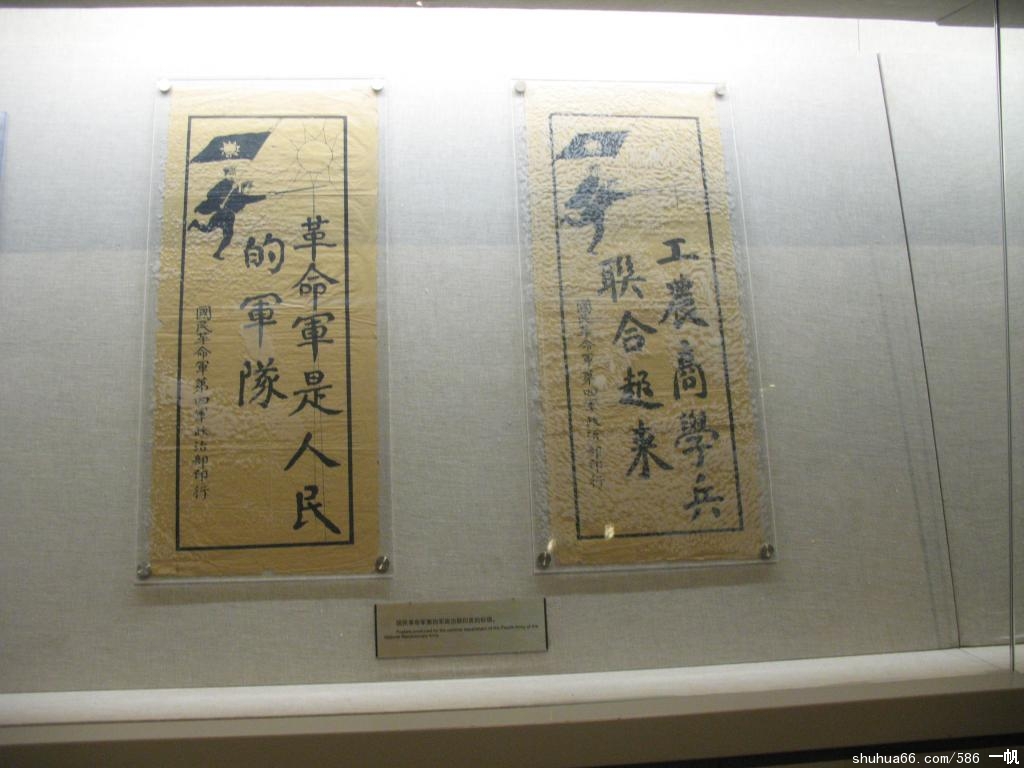 革命軍是人民
的軍隊
國民革命軍第四軍政治部印行
工農商學兵
聯合起来
國民革命軍第四軍政治部印行
国民革命军第四军政治部印发的标语。
Posters produced by the political department of the Fourth Army of the
National Revolutionary Army
shuhua66.com/586 一帆